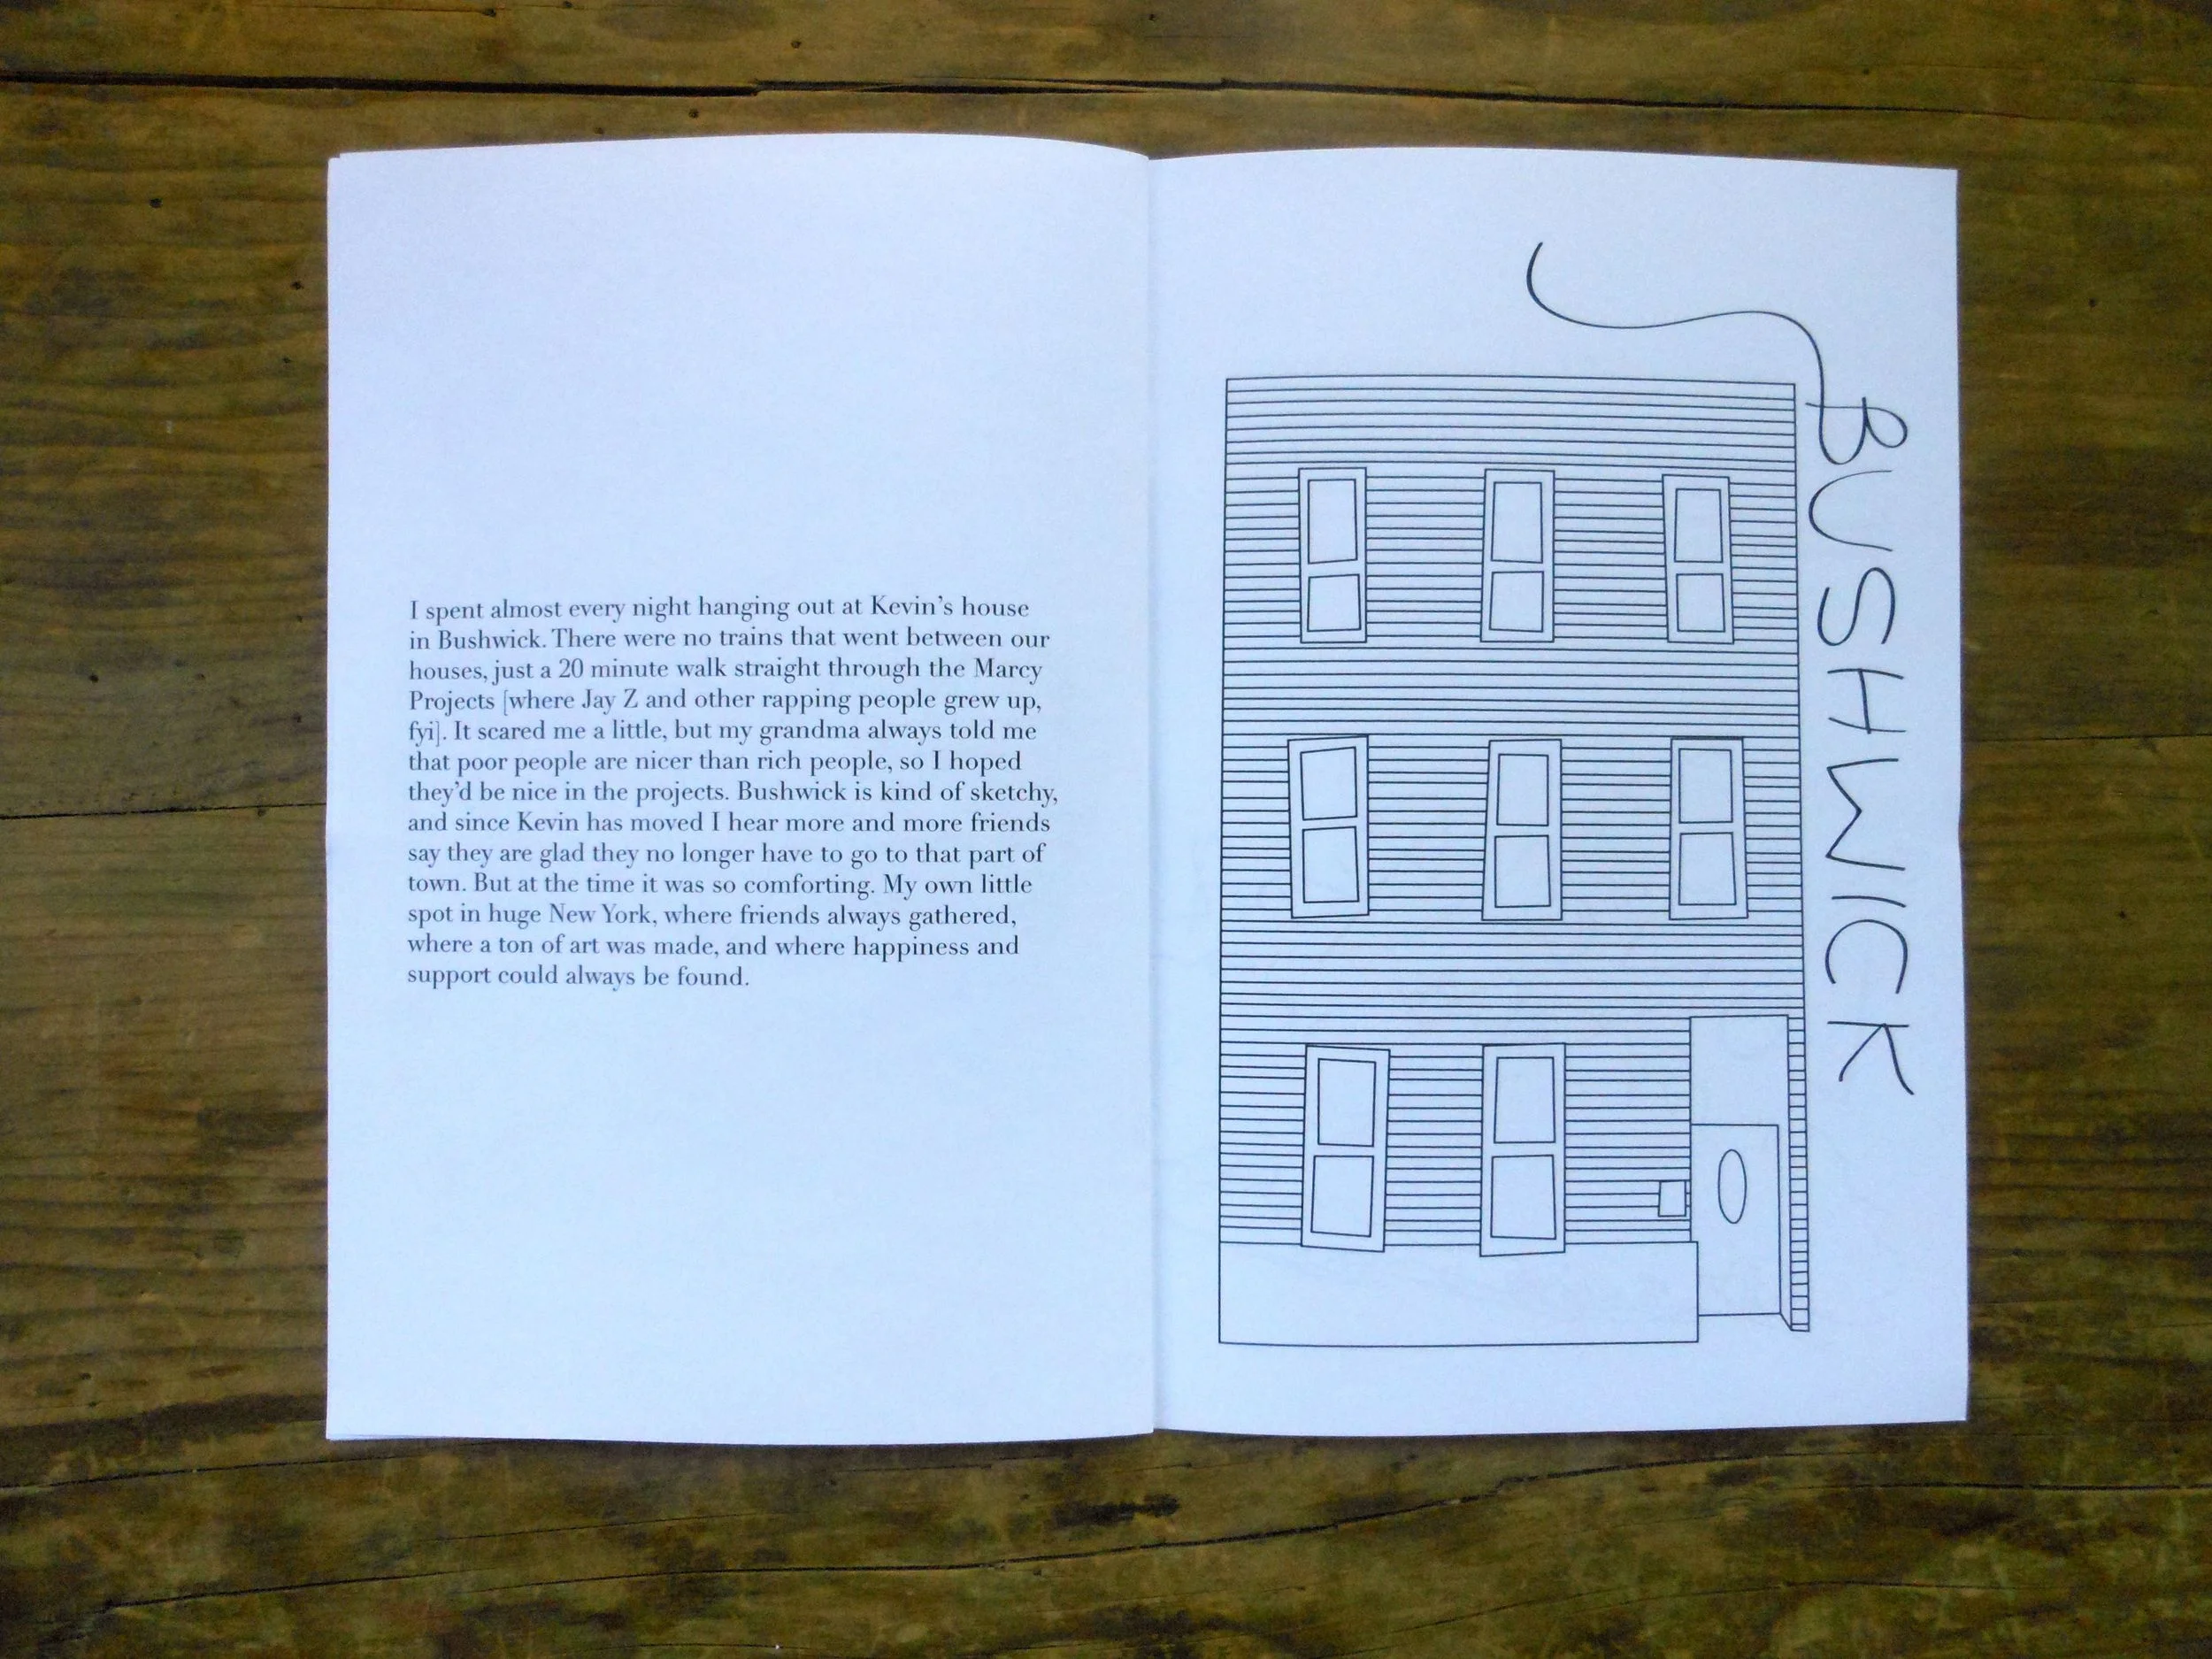 I spent almost every night hanging out at Kevin’s house
in Bushwick. There were no trains that went between our
houses, just a 20 minute walk straight through the Marcy
Projects [where Jay Z and other rapping people grew up,
fyi]. It scared me a little, but my grandma always told me
that poor people are nicer than rich people, so I hoped
they’d be nice in the projects. Bushwick is kind of sketchy,
and since Kevin has moved I hear more and more friends
say they are glad they no longer have to go to that part of
town. But at the time it was so comforting. My own little
spot in huge New York, where friends always gathered,
where a ton of art was made, and where happiness and
support could always be found.
BUSHWICK